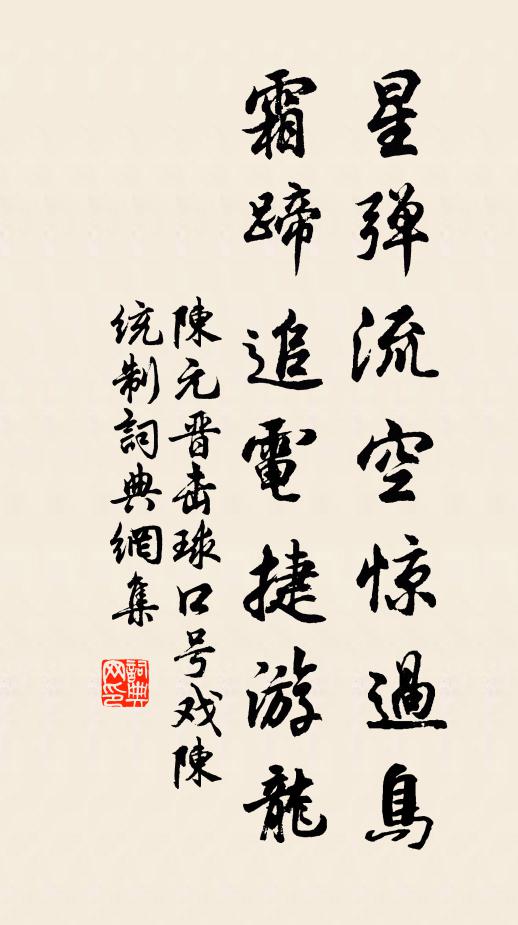 星弹流空惊過鳥
霜蹄追電捷游龍
陳元晋击球口号戏陳
统制詞典網集
詞典网印